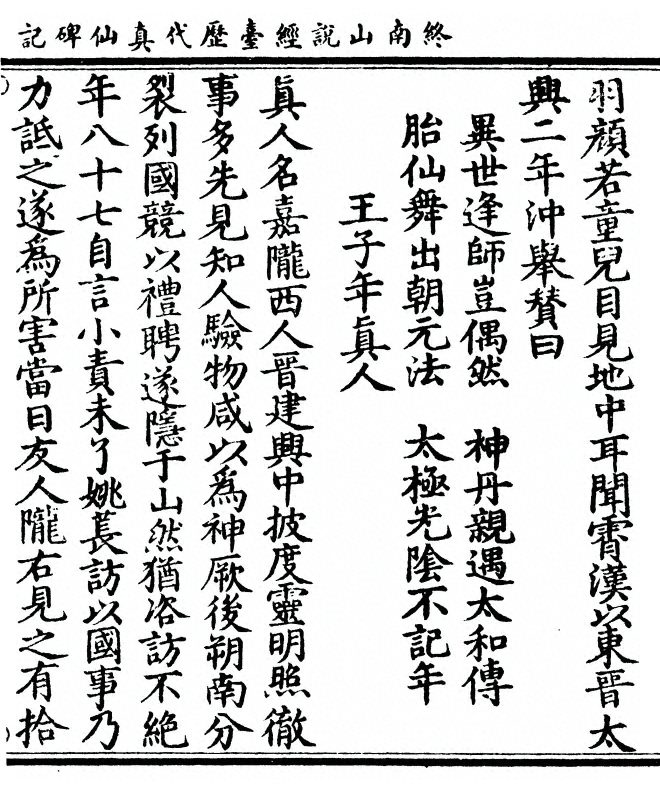 終南山說經臺歷代真仙碑記
羽顏若童兒目見地中耳聞霄漢以東晉太
興二年沖舉贊曰
異世逢師豈偶然　神丹親遇太和傳
胎仙舞出朝元法　太極光陰不記年
王子年眞人
眞人名嘉隴西人晉建興中披度靈明照徹
事多先見知人驗物咸以爲神厥後朔南分
裂列國競以禮聘遂隱于山然猶咨訪不絕
年八十七自言小責未了姚萇訪以國事乃
力詆之遂爲所害當日友人隴右見之有拾